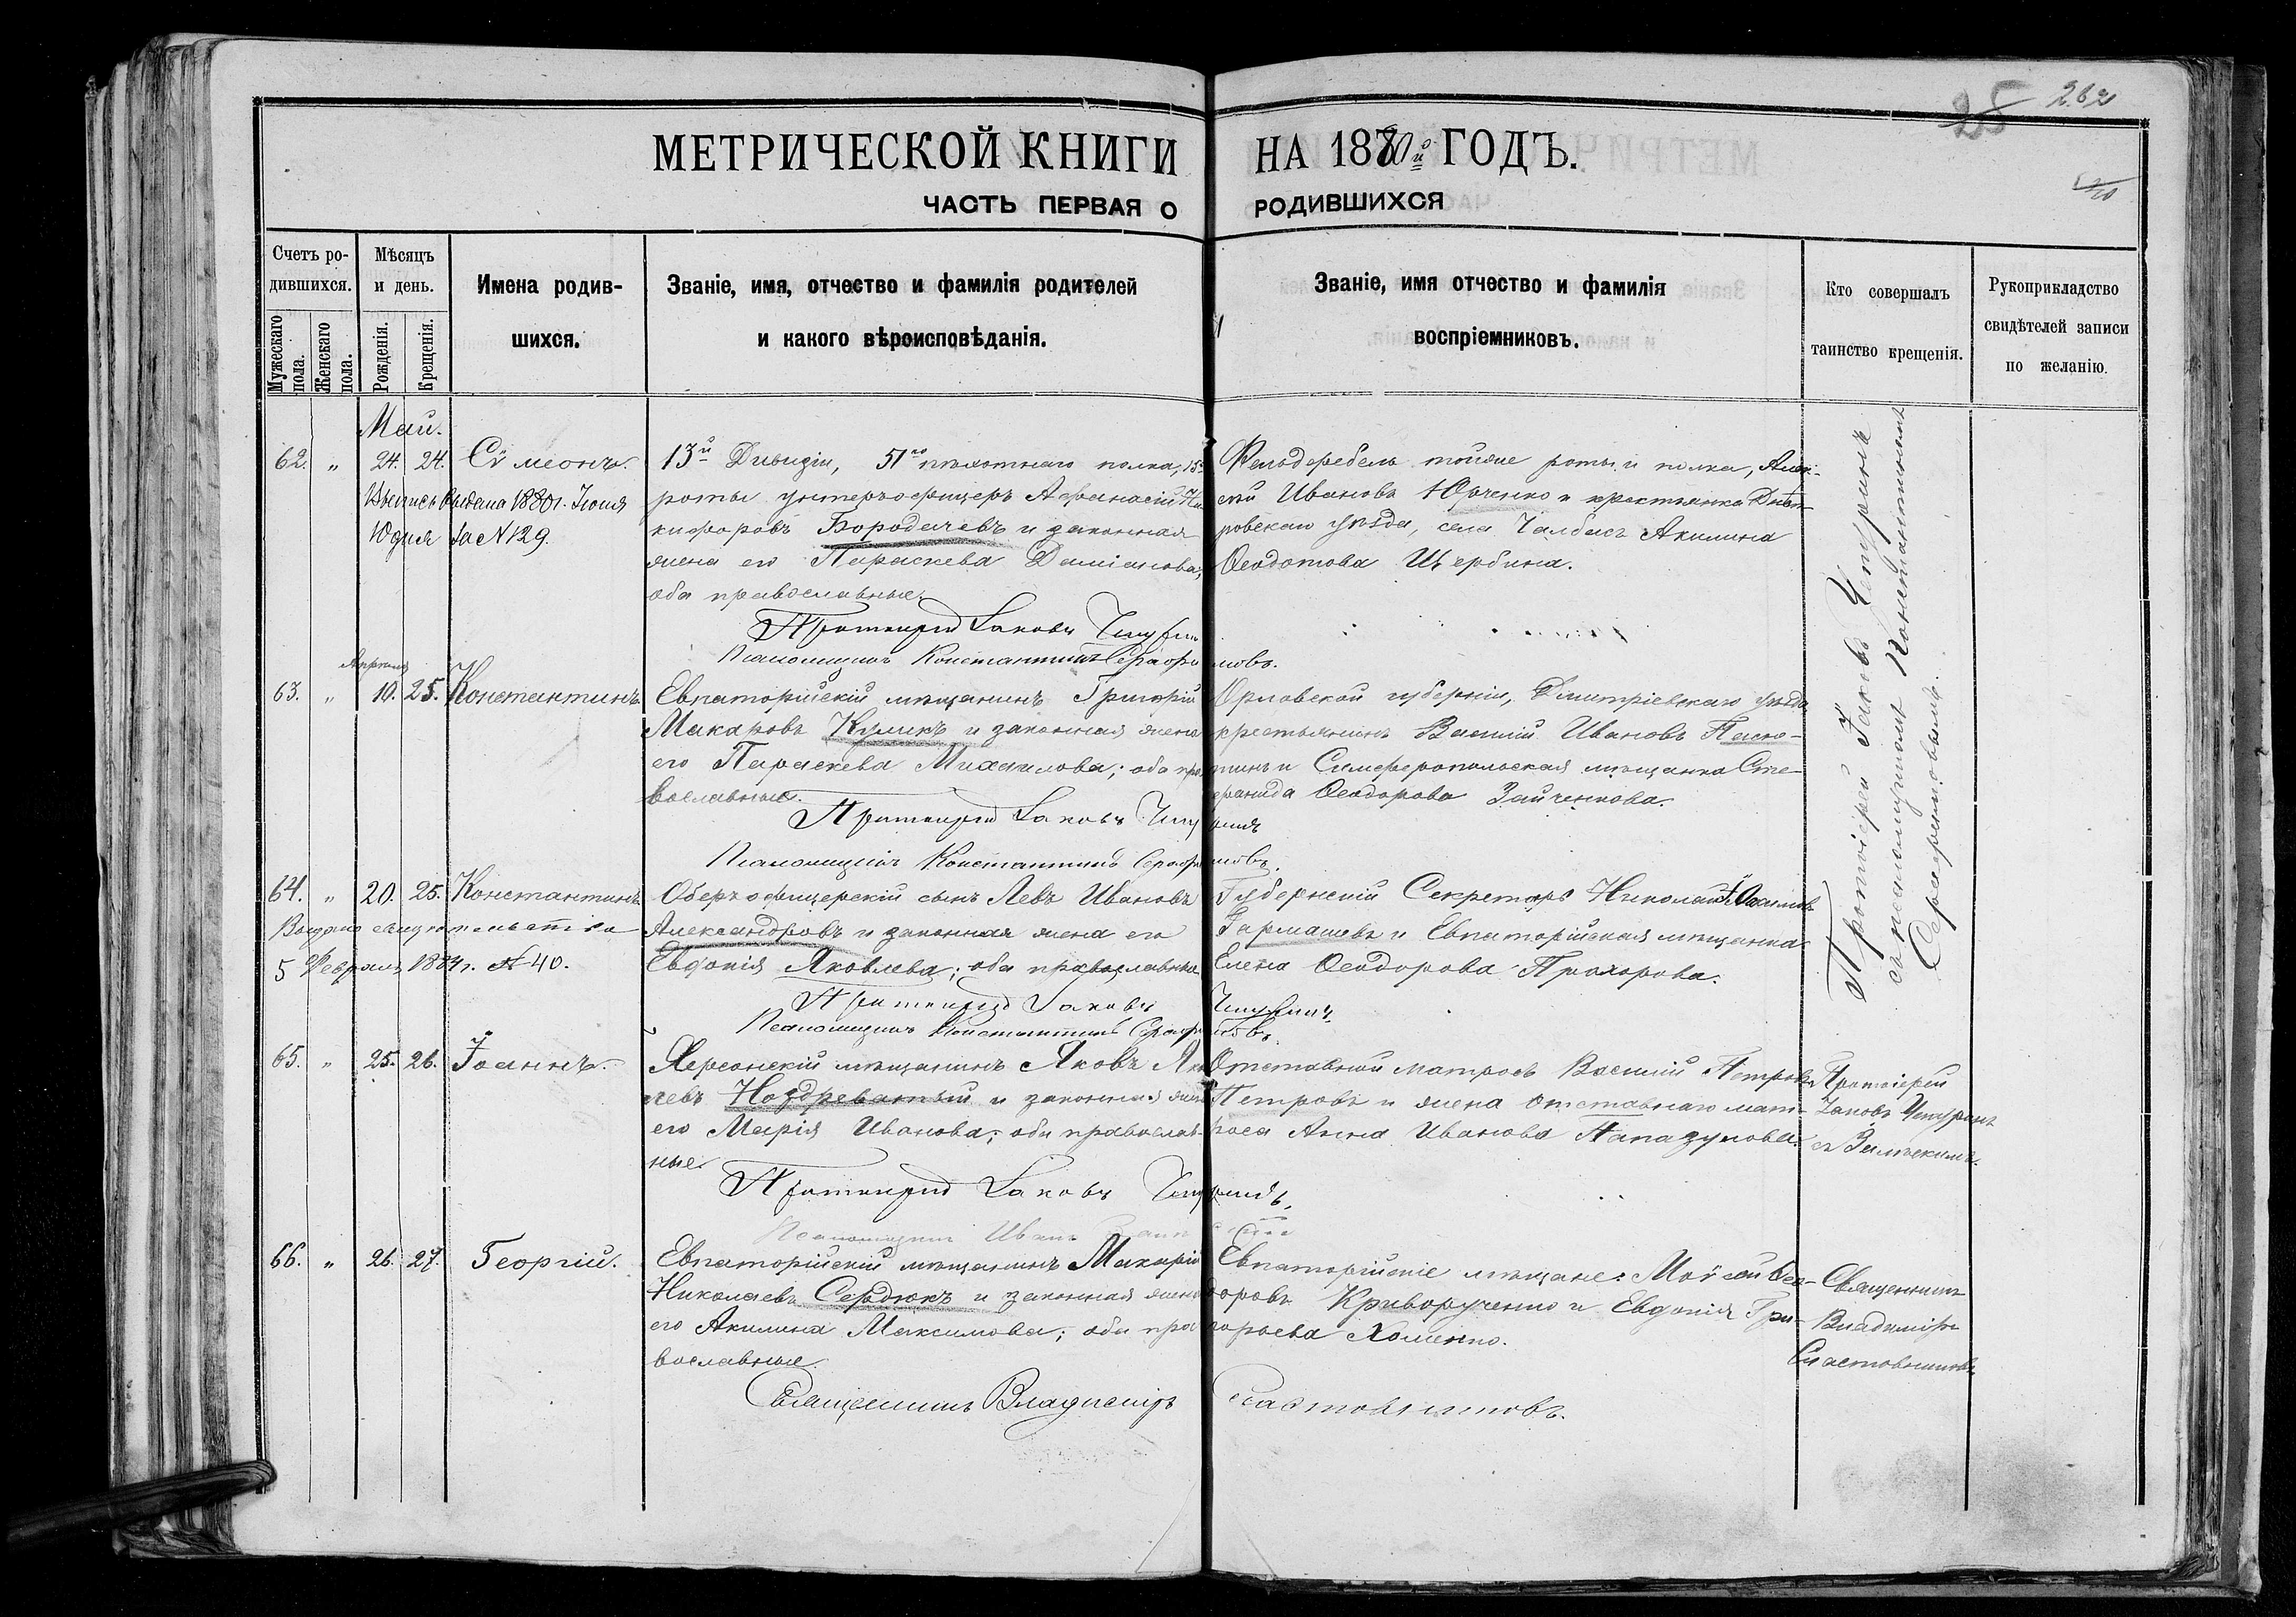 25 262
МЕТРИЧЕСКОЙ КНИГИ НА 1880й ГОДЪ.
ЧАСТЬ ПЕРВАЯ О РОДИВШИХСЯ
Счетъ ро-
дившихся.
Мужескаго пола.
Женскаго пола.
Мѣсяцъ
и день.
Рожденія.
Крещенія.
Имена родив-
шихся.
Званіе, имя, отчество и фамилія родителей
и какого вѣроисповѣданія.
Званіе, имя отчество и фамилія
воспріемниковъ.
Кто совершалъ
таинство крещенія.
Рукоприкладство
свидѣтелей записи
по желанію.
Май.
62. " 24. 24. Сѵмеонъ.
Выпись выдана 1880 г. Іюня
10 дня за № 129.
13й Дивизіи, 51го пѣхотнаго полка, 15й
роты унтеръ-офицеръ Афанасій Ни-
кифоровъ Бородачевъ и законная
жена его Параскева Даміанова;
оба православные.
Фельдфебель тойже роты и полка, Алек-
сѣй Ивановъ Юрченко и крестьянка Днѣп-
ровскаго уѣзда, села Чалбасъ Акилина
Ѳеодотова Щербина.
Протоіерей Іаковъ Чепуринъ
Псаломщикъ Константинъ Серафимовъ.
Протоіерей Іаковъ Чепуринъ
съ псаломщикомъ Константиномъ
Серафимовымъ.
Апрѣля
63. " 10. 25. Константинъ.
Евпаторійскій мѣщанинъ Григорій
Макаровъ Куликъ и законная жена
его Параскева Михаилова; оба пра-
вославные.
Орловской губерніи, Димитріевскаго уѣзда
крестьянинъ Василій Ивановъ
и Симферопольская мѣщанка Сте-
фанида Ѳеодорова Зайченкова.
Протоіерей Іаковъ Чепуринъ
Псаломщикъ Константинъ Серафимовъ.
64. " 20. 25. Константинъ
Выдано свидѣтельство
5 Февраля 1884 г. № 40.
Оберъ-офицерскій сынъ Левъ Ивановъ
Александровъ и законная жена его
Евдокія Яковлева; оба православные
Губернскій Секретарь Николай
Гармашевъ и Евпаторійская мѣщанка
Елена Ѳеодорова Прохорова.
Протоіерей Іаковъ Чепуринъ
Псаломщикъ Константинъ Серафимовъ.
65. " 25. 26. Іоаннъ.
Херсонскій мѣщанинъ Яковъ Яков-
левъ Ноздреватый и законная жена
его Марія Иванова; оба православ-
ные.
Отставной матросъ Василій Петровъ
Петровъ и жена отставнаго мат-
роса Анна Иванова Папазулова.
Протоіерей
Іаковъ Чепуринъ
съ
Протоіерей Іаковъ Чепуринъ.
Псаломщикъ Иванъ
66. " 26. 27. Георгій.
Евпаторійскій мѣщанинъ Макарій
Николаевъ Сердюкъ и законная жена
его Акилина Максимова; оба пра-
вославные.
Евпаторійскіе мѣщане: Моѵсей Ѳео-
доровъ Криворученко и Евдокія Гри-
горьева Хоменко.
Священникъ
Владиміръ
Счастовниковъ
Священникъ Владиміръ Счастовниковъ.